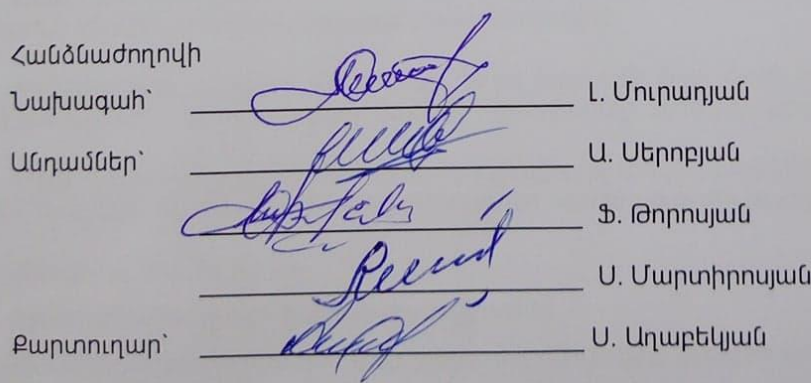 Հանձնաժողովի
Նախագահ՝ Լ. Մուրադյան
Անդամներ՝ Ա. Սերոբյան
Ֆ. Թորոսյան
Ս. Մարտիրոսյան
Քարտուղար՝ Ս. Աղաբեկյան